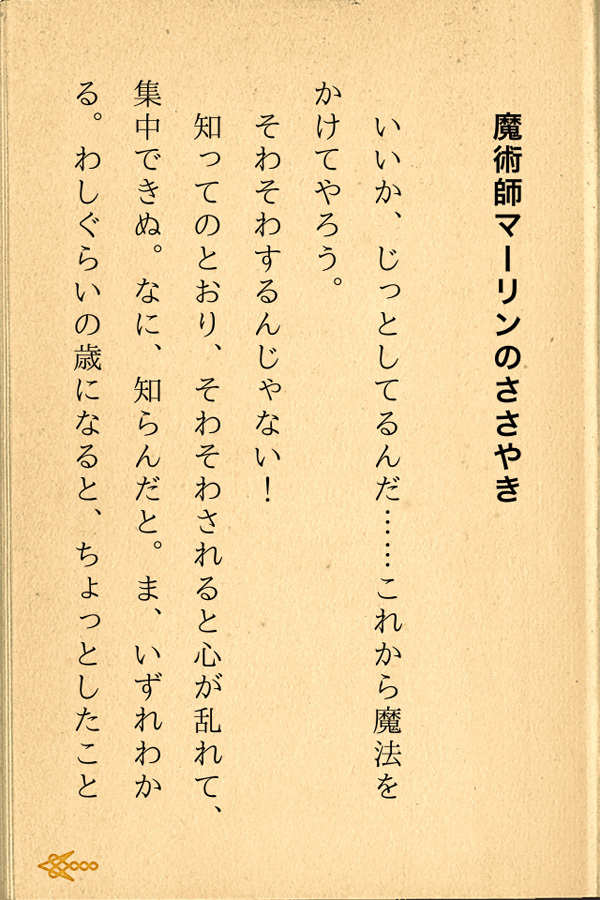 魔術師マーリンのささやき
いいか、じっとしてるんだ……これから魔法を
かけてやろう。
そわそわするんじゃない！
知ってのとおり、そわそわされると心が乱れて、
集中できぬ。なに、知らんだと。ま、いずれわか
る。わしぐらいの歳になると、ちょっとしたこと